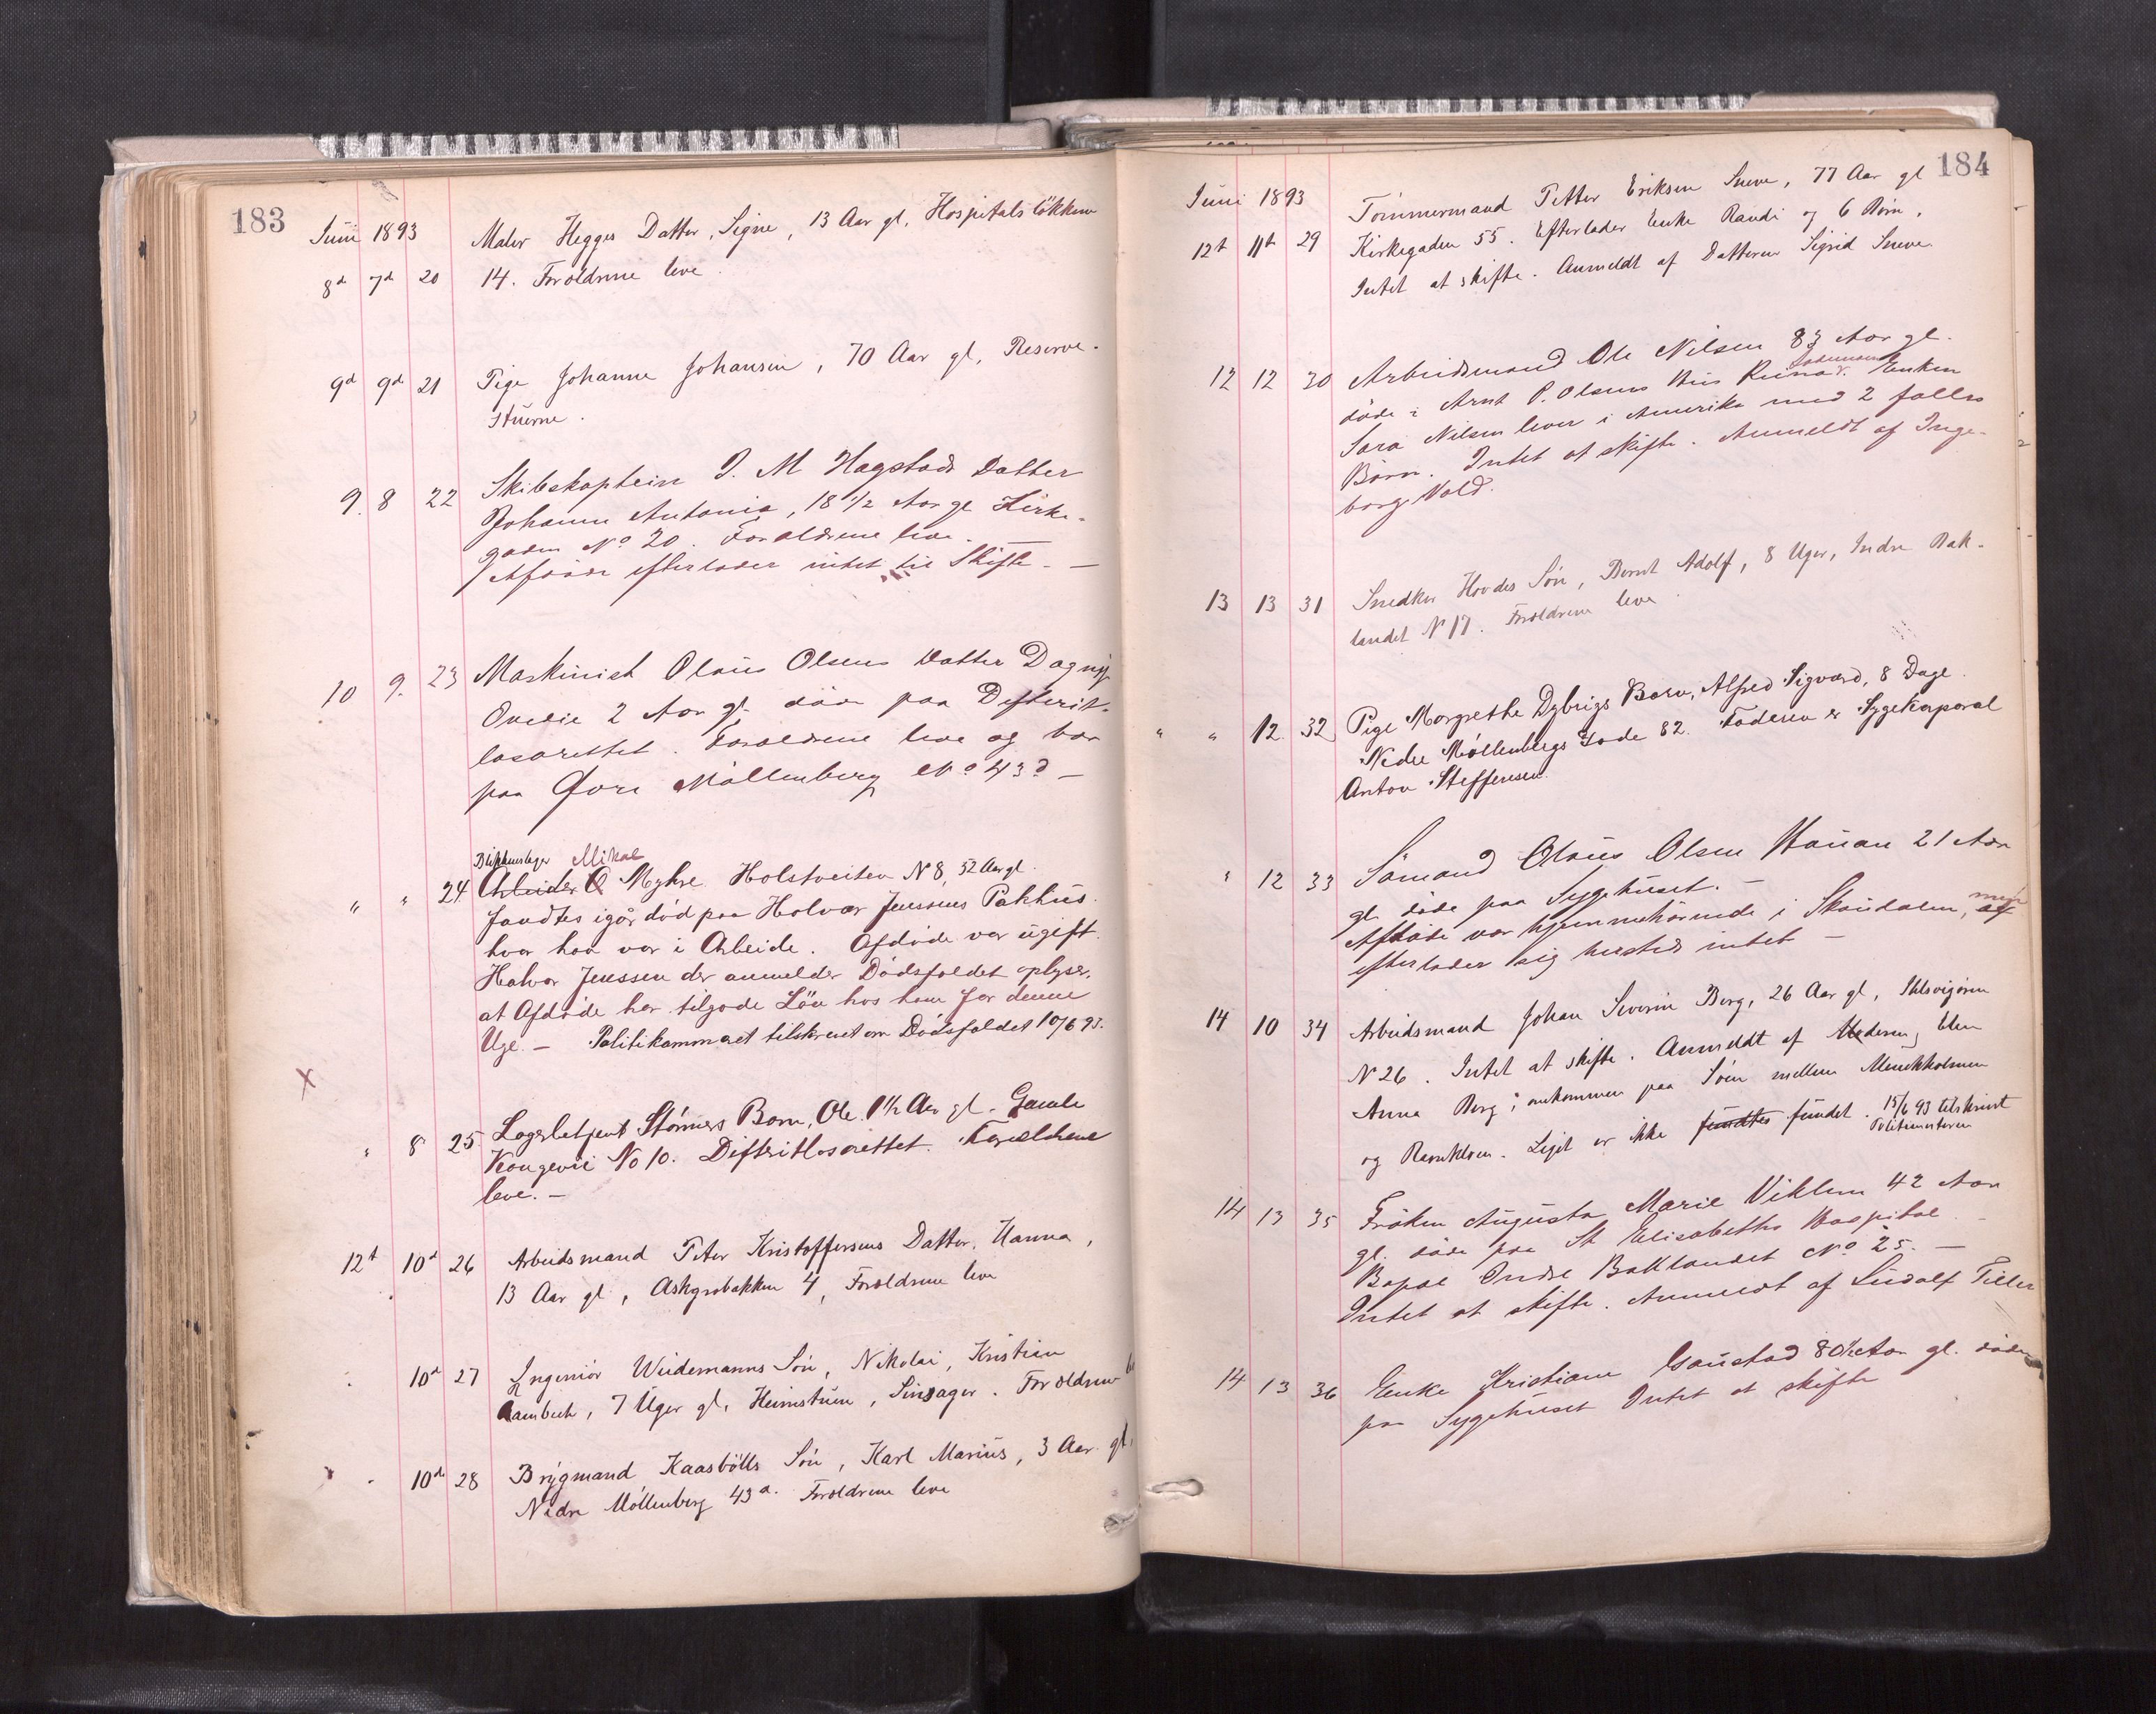 183
Juni 1893
Maler Hegges Datter, Signe, 13 Aar gl, Hospitalsløkken
8d 7d 20 14. Forældrene leve.
9d 9d 21 Pige Johanne Johansen, 70 Aar gl, Reserve-
stuerne.
9. 8 22 Skibskaptein J. M Hagstads Datter
Johanne Antonia, 18 1/2 Aar gl Kirke-
gaden No 20. Forældrene leve.
Afdøde efterlader intet til Skifte. —
10 9. 23 Maskinist Olaus Olsens Datter Dagny
Ovedie 2 Aar gl. døde paa Difterit-
lasarettet. Forældrene leve og bor
paa Øvre Møllenberg No 43d —
Blikkenslager Mikal
" " 24 Arbeider O Myhre Holstveiten N 8, 52 Aar gl.
fandtes igår død paa Halvor Jenssens Pakhus.
hvor han var i Arbeide. Afdøde var ugift.
Halvor Jenssen der anmelder Dødsfaldet oplyser,
at Afdøde har tilgode Løn hos ham for denne
Uge. — Politikammeret tilskrevet om Dødsfaldet 10/6 93.
X
" 8 25 Lagerbetjent Størmers Barn, Ole 1 1/2 Aar gl. Gamle
Kongevei No 10. Difteritlasarettet. Forældrene
leve. —
12t 10d 26 Arbeidsmand Peter Kristoffersens Datter, Hanna,
13 Aar gl, Askgrobakken 4, Forældrene leve
10d 27 Ingeniør Wiidemanns Søn, Nikolai, Kristian
7 Uger gl, Heimstuen, Singsager. Forældrene
10d 28 Brygmand Kaasbølls Søn, Karl Marius, 3 Aar gl,
Nedre Møllenberg 43a. Forældrene leve
184
Juni 1893
Tømmermand Petter Eriksen Sneve, 77 Aar gl
12t 11t 29 Kirkegaden 55. Efterlader Enke Randi og 6 Børn.
Intet at skifte. Anmeldt af Datteren Sigrid Sneve.
12 12 30 Arbeidsmand Ole Nilsen 83 Aar gl.
døde i Arnt P. Olsens Hus Enken
Sara Nilsen lever i Amerika med 2 fælles
Børn. Intet at skifte. Anmeldt af Inge-
borg Vold.
13 13 31 Snedker Hovdes Søn, Bernt Adolf, 8 Uger, Indre Bak-
landet N 17. Forældrene leve
" " 12 32 Pige Margrethe Dybvigs Barn, Alfred Sigvard, 8 Dage.
Nedre Møllenbergs Gade 82. Faderen er Sygekorporal
Anton Steffensen.
" 12 33 Sømand Olaus Olsen Hauan 21 Aar
gl. døde paa Sygehuset. —
Afdøde var hjemmehørende i Skaudalen, men
efterlader sig hersteds intet —
14 10 34 Arbeidsmand Johan Severin Berg, 26 Aar gl, Ihlsvigøren
N 26. Intet at skifte. Anmeldt af Moderen,
Anna Berg; omkommen paa Søen mellem Munkholmen
og Ranekloen. Liget er ikke fundtes fundet. 15/6 93 tilskrevet
Politimesteren
14 13 35 Frøken Augusta Marie Viklem 42 Aar
gl. døde paa St Elisabeths Hospital
Bopæl Indre Baklandet No 25. —
Intet at skifte. Anmeldt af Ludolf Tiller
14 13 36 Enke Kristiane Gaustad 80 1/2 Aar gl. døde
paa Sygehuset Intet at skifte